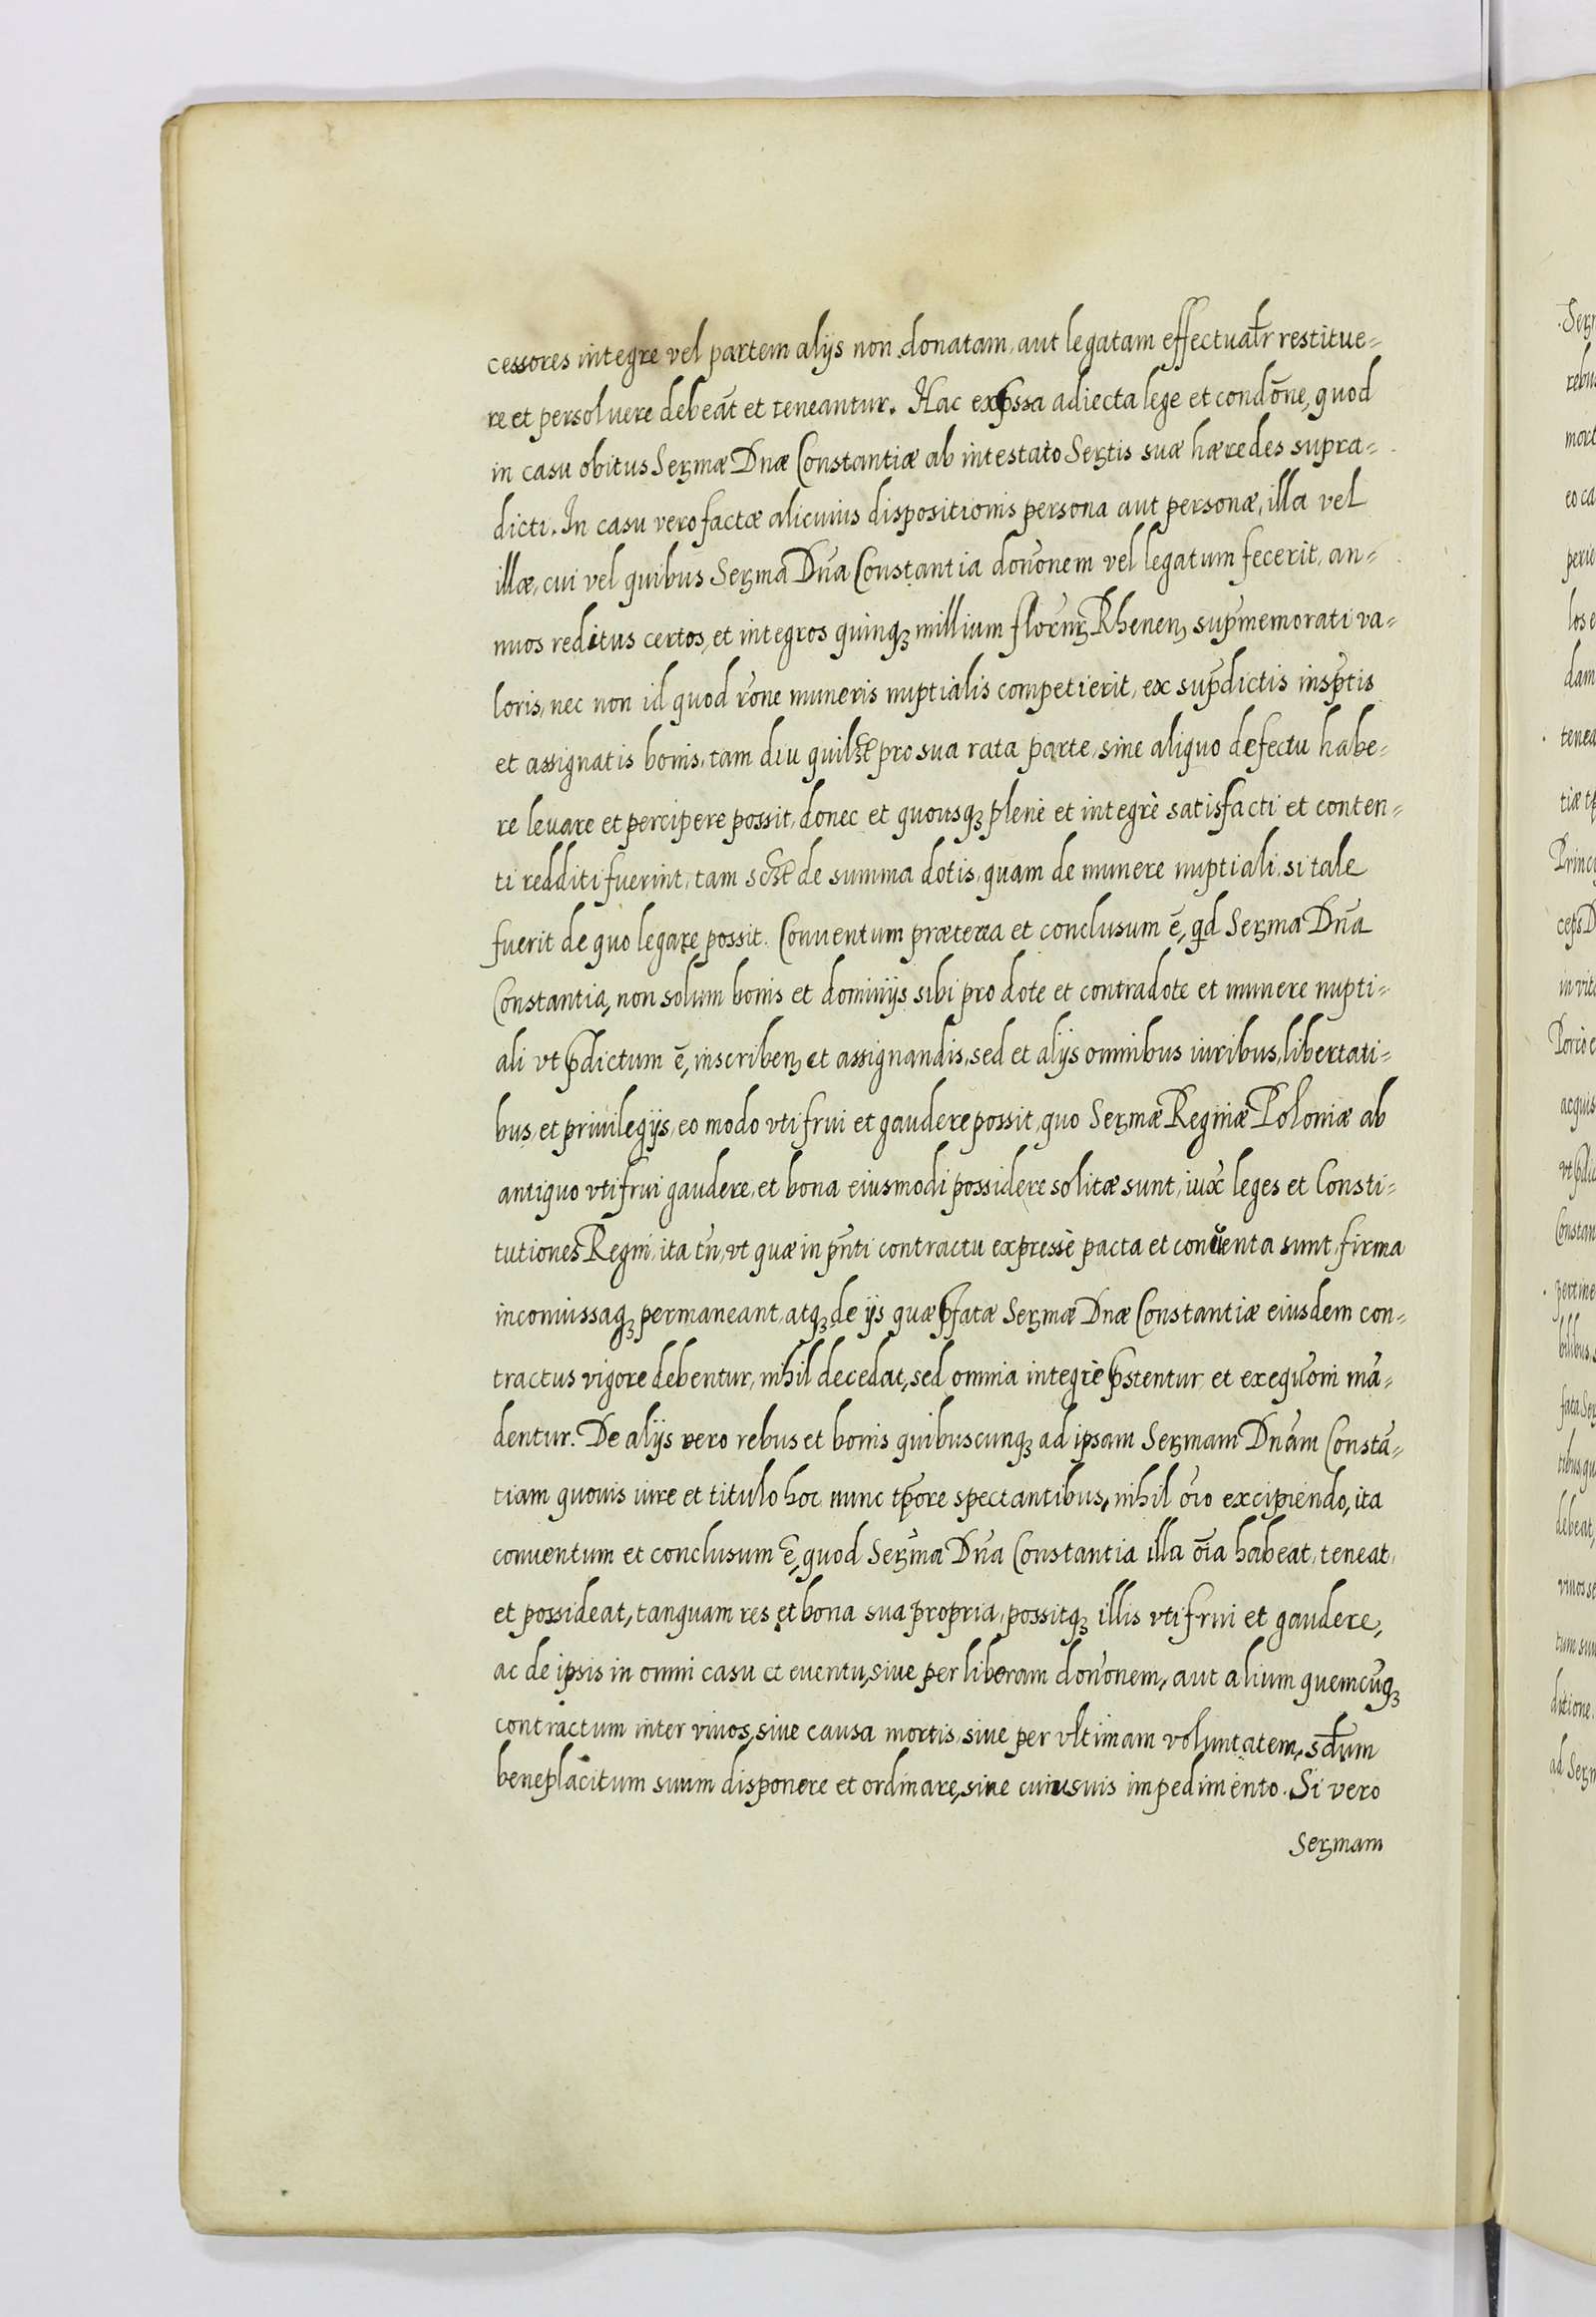 cessores integre vel partem alijs non donatam, aut legatam effectualr̄ restitue=
re et persoluere debeāt et teneantur. Hac exp̄ssa adiecta lege et condōne, quod
in casu obitus Serꝫmæ Dnæ Constantiæ ab intestato Serꝫtis suæ hæredes supra=
dicti. In casu vero factæ alicuius dispositionis persona aut personæ, illa vel
illæ, cui vel quibus Serꝫma Dn̄a Constantia donōnem vel legatum fecerit, an=
nuos reditus certos, et integros quinqꝫ millium florn̄ꝫ Rhenenꝫ sup̄memorati va=
loris, nec non id quod rōne muneris nuptialis competierit, ex sup̄dictis insp̄tis
et assignatis bonis, tam diu quilꝫt pro sua rata parte, sine aliquo defectu habe=
re leuare et percipere possit, donec et quousqꝫ plenè et integrè satisfacti et conten=
ti redditi fuerint, tam sclꝫt de summa dotis, quam de munere nuptiali, si tale
fuerit de quo legare possit. Conuentum præterea et conclusum ē, qd Serꝫma Dn̄a
Constantia, non solum bonis et dominijs sibi pro dote et contradote et munere nupti=
ali vt p̄dictum ē, inscribenꝫ et assignandis, sed et alijs omnibus iuribus, libertati=
bus, et priuilegijs, eo modo vti frui et gaudere possit, quo Serꝫmæ Reginæ Poloniæ ab
antiquo vti frui gaudere, et bona eiusmodi possidere solitæ sunt, iux̄ leges et Consti=
tutiones Regni, ita tn̄, vt quæ in p̄nti contractu expressè pacta et conuenta sunt, firma
inconuissaqꝫ permaneant, atqꝫ de ijs quæ p̄fatæ Serꝫmæ Dnæ Constantiæ eiusdem con=
tractus vigore debentur, nihil decedat, sed omnia integrè p̄stentur et exequōni mā=
dentur. De alijs vero rebus et bonis quibuscunqꝫ ad ipsam Serꝫmam Dn̄am Constā=
tiam quouis iure et titulo hoc nunc tp̄ore spectantibus, nihil oīo excipiendo, ita
conuentum et conclusum ē, quod Serꝫma Dn̄a Constantia illa oīa habeat, teneat,
et possideat, tanquam res et bona sua propria, possitqꝫ illis vti frui et gaudere,
ac de ipsis in omni casu et euentu, siue per liberam donōnem, aut alium quemcūqꝫ
contractum inter viuos, siue causa mortis, siue per vltimam voluntatem, scd̄um
beneplacitum suum disponere et ordinare, sine cuiusuis impedimento. Si vero
Serꝫmam